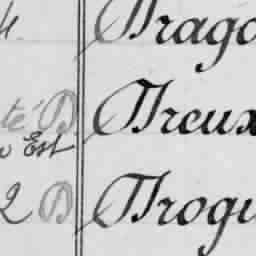 4. Drago
té D Dreux
Est
2 D Drogu